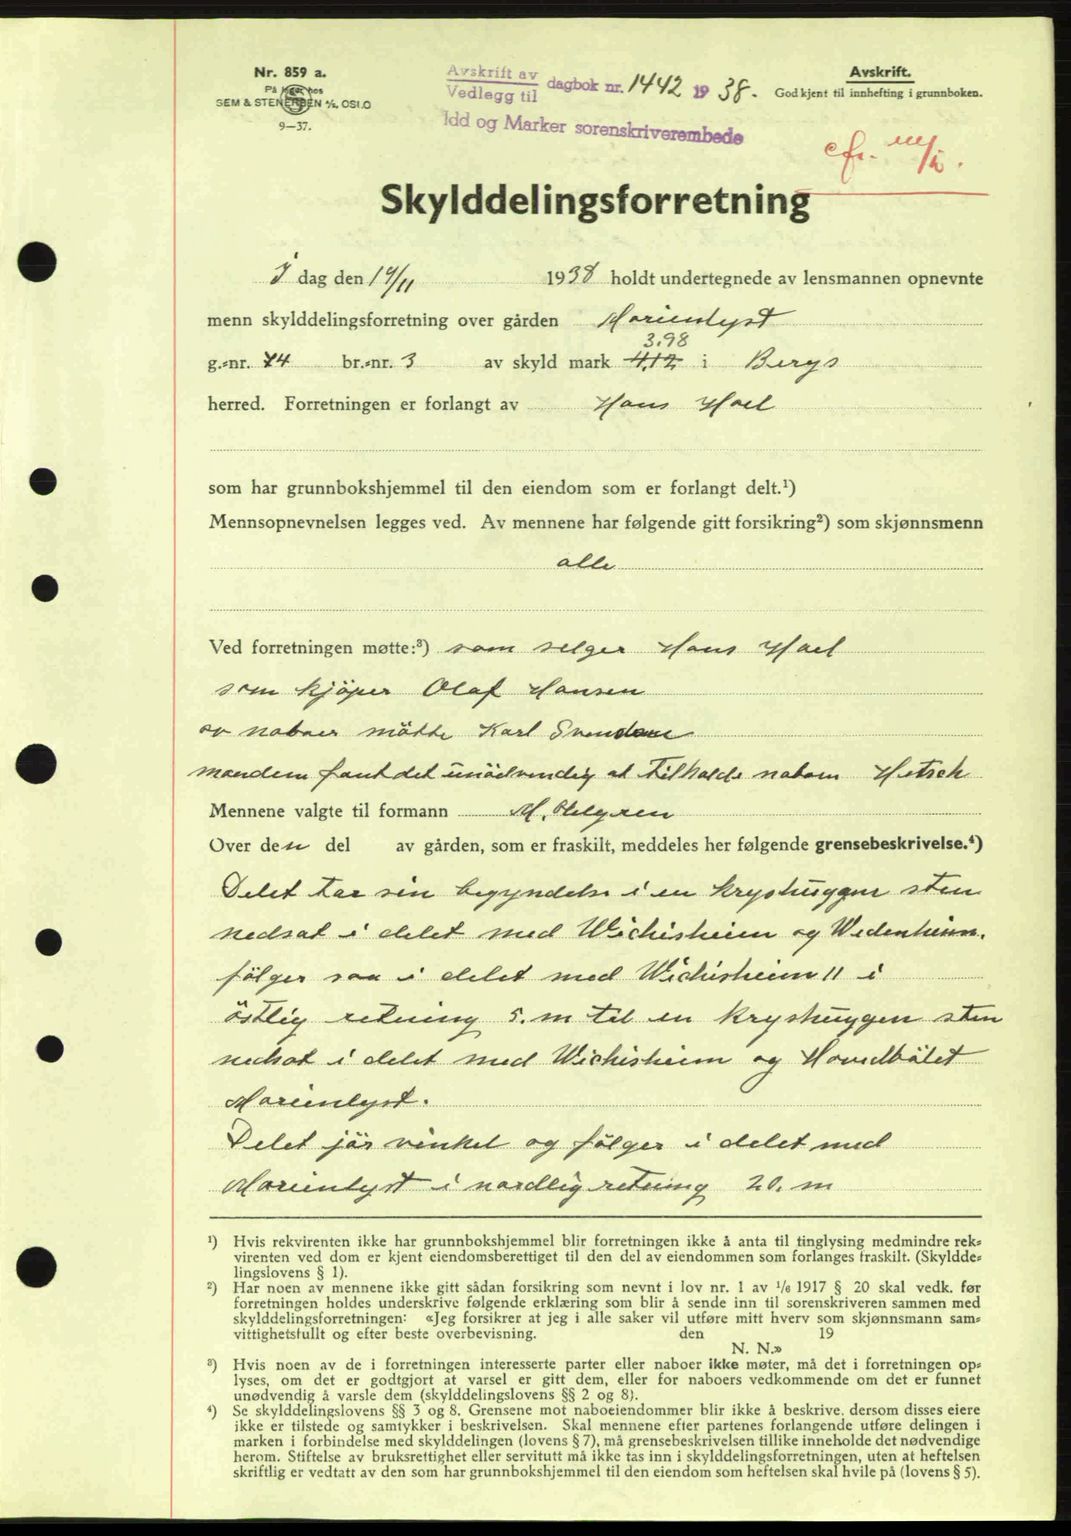 Nr. 859 a.
På lager hos
SEM & STENERSEN A/S, OSLO
9—37.
Avskrift av
Vedlegg til
dagbok nr. 1442 1938.
Idd og Marker sorenskriverembede
Avskrift.
Godkjent til innhefting i grunnboken.
cfr.
Skylddelingsforretning
I dag den 19/11 1938 holdt undertegnede av lensmannen opnevnte
menn skylddelingsforretning over gården Marienlyst
3.98
g.=nr. 44 br.=nr. 3 av skyld mark 4,12 i Bergs
herred. Forretningen er forlangt av Hans Hoel
som har grunnbokshjemmel til den eiendom som er forlangt delt.¹)
Mennsopnevnelsen legges ved. Av mennene har følgende gitt forsikring²) som skjønnsmenn
alle
Ved forretningen møtte:³) som selger Hans Hoel
som kjöper Olaf Hansen
av naboer mötte Karl Svendsen
mændene fant det unödvendig at tilkalde naboen Hetsch
Mennene valgte til formann M. Helgren
Over den del av gården, som er fraskilt, meddeles her følgende grensebeskrivelse.⁴)
Delet tar sin begyndelse i en kryshuggen sten
nedsat i delet med Wichisheim og Wedenheim.
fölger saa i delet med Wichisheim 11 i
östlig retning 5. m til en kryshuggen sten
nedsat i delet med Wichisheim og Hovedbölet
Marienlyst.
Delet jör vinkel og fölger i delet med
Marienlyst i nordlig retning 20. m
¹) Hvis rekvirenten ikke har grunnbokshjemmel blir forretningen ikke å anta til tinglysing medmindre rek=
virenten ved dom er kjent eiendomsberettiget til den del av eiendommen som forlanges fraskilt. (Skyldde=
lingslovens § 1).
²) Har noen av mennene ikke gitt sådan forsikring som nevnt i lov nr. 1 av 1/6 1917 § 20 skal vedk. før
forretningen holdes underskrive følgende erklæring som blir å sende inn til sorenskriveren sammen med
skylddelingsforretningen: «Jeg forsikrer at jeg i alle saker vil utføre mitt hverv som skjønnsmann sam=
vittighetsfullt og efter beste overbevisning. den 19
N. N.»
³) Hvis noen av de i forretningen interesserte parter eller naboer ikke møter, må det i forretningen op=
lyses, om det er godtgjort at varsel er gitt dem, eller for naboers vedkommende om det er funnet
unødvendig å varsle dem (skylddelingslovens §§ 2 og 8).
⁴) Se skylddelingslovens §§ 3 og 8. Grensene mot naboeiendommer blir ikke å beskrive, dersom disses eiere
ikke er tilstede og samtykker i beskrivelsen. Skal mennene efter partenes forlangende utføre delingen i
marken i forbindelse med skylddelingen (lovens § 7), må grensebeskrivelsen tillike inneholde det nødvendige
herom. Stiftelse av bruksrettighet eller servitutt må ikke tas inn i skylddelingsforretningen, uten at heftelsen
skriftlig er vedtatt av den som har grunnbokshjemmel til den eiendom som heftelsen skal hvile på (lovens § 5).